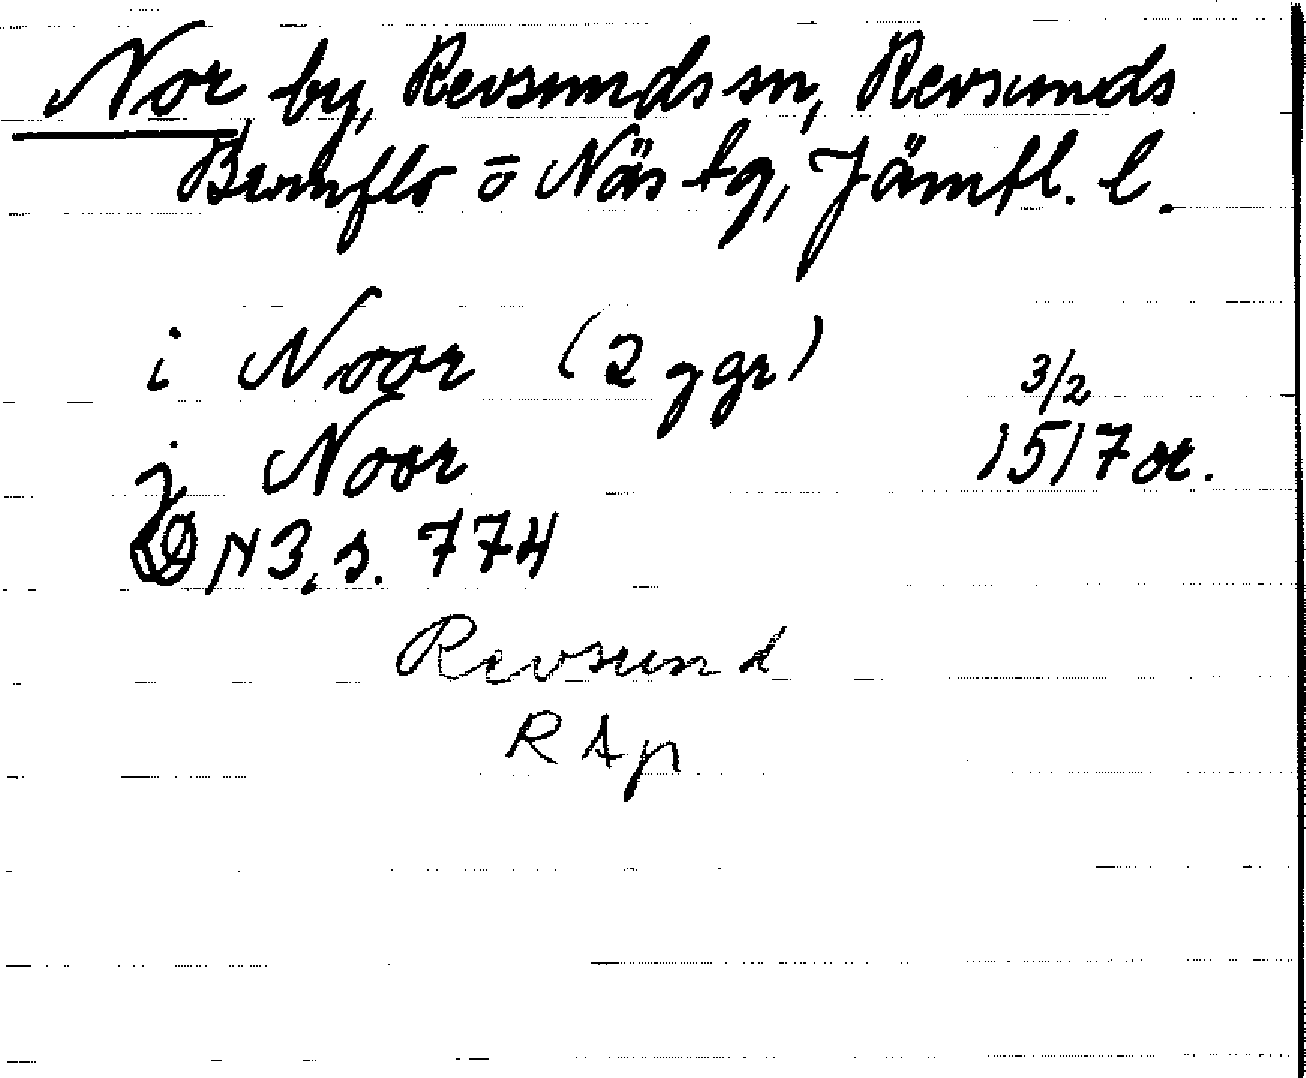 Nor by, Revsunds sn, Revsunds
Brunflo o Näs tg, Jämtl. l.
i Noor (2 ggr)
3/2
j Noor 1517 or.
DN 3, s. 774
Revsund
R Ap